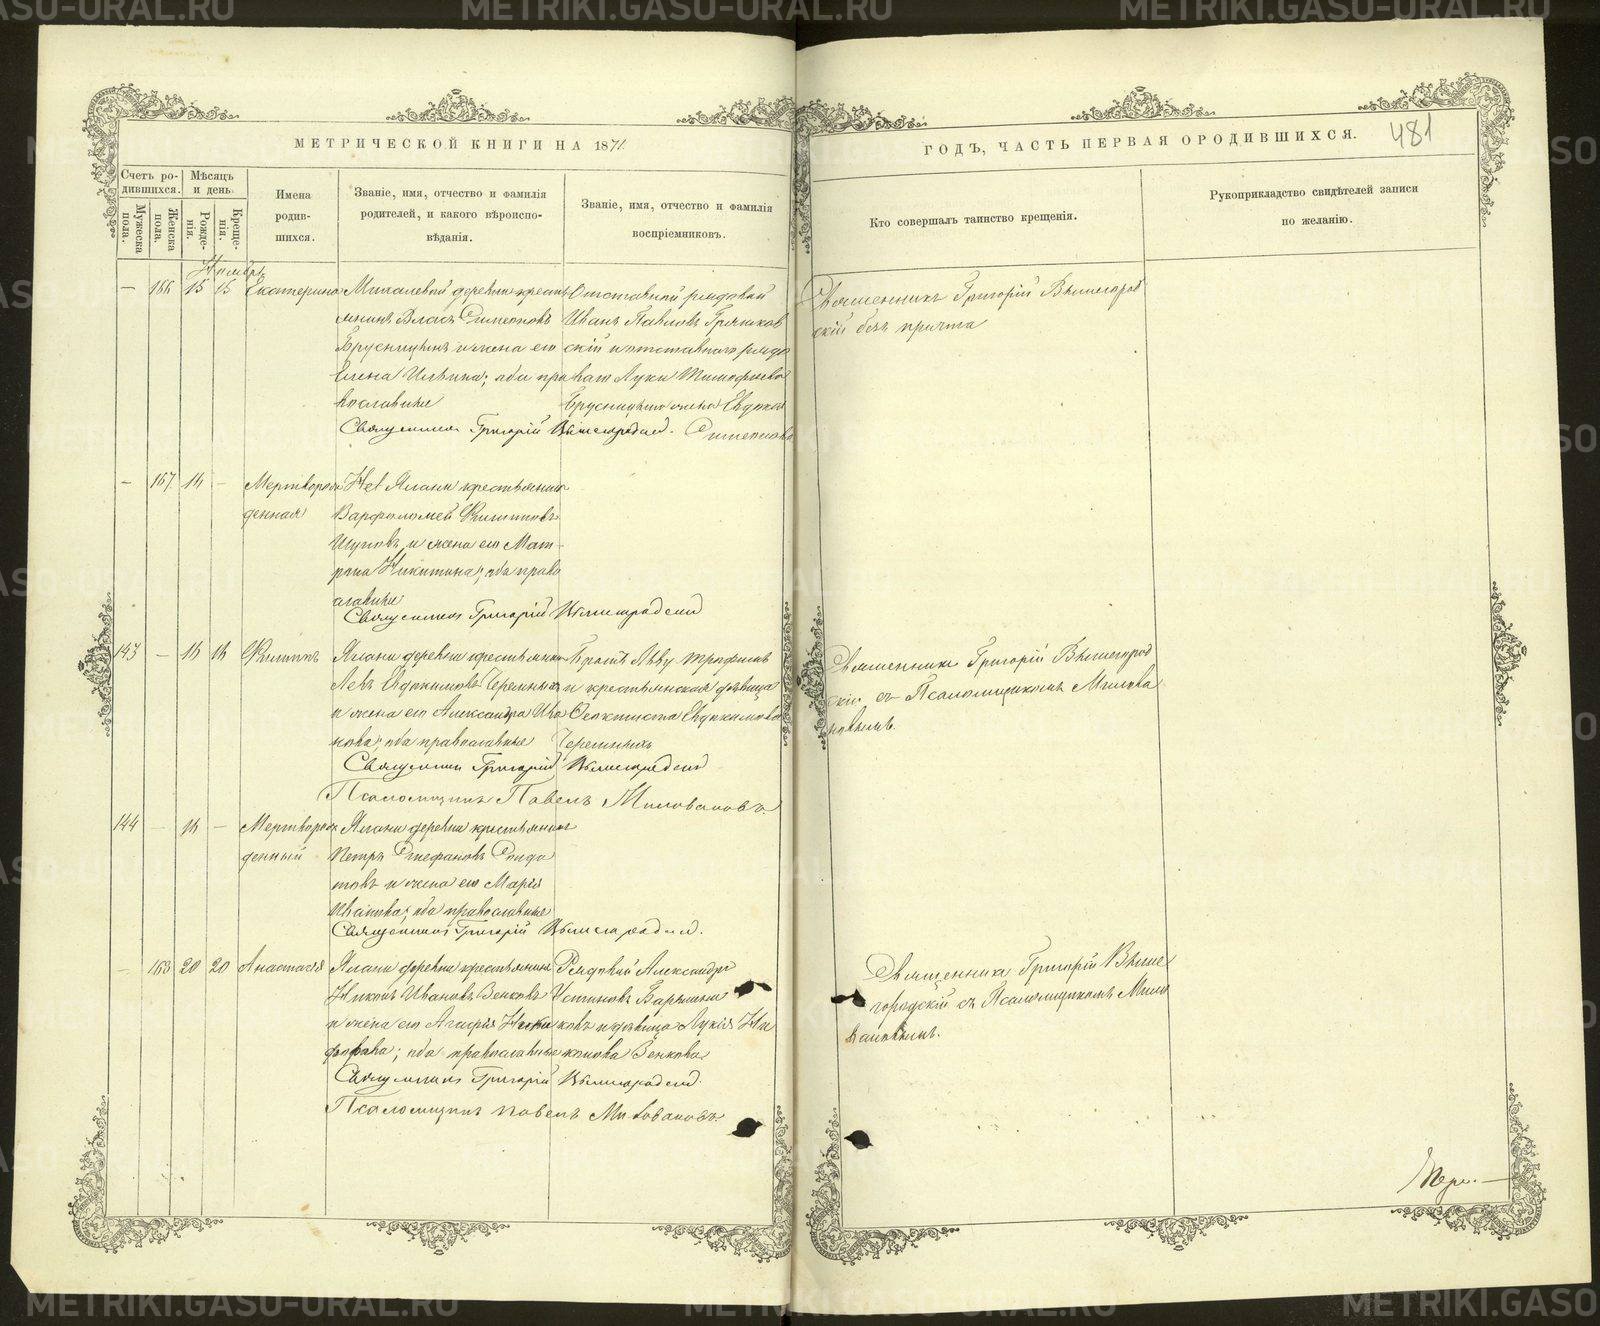 МЕТРИЧЕСКОЙ КНИГИ НА 1871
ГОДЪ, ЧАСТЬ ПЕРВАЯ О РОДИВШИХСЯ.
481
Счетъ родившихся.
Мужеска пола.
Женска пола.
Мѣсяцъ и день.
Рожденія.
Крещенія.
Имена родившихся.
Званіе, имя, отчество и фамилія родителей, и какого вѣроисповѣданія.
Званіе, имя, отчество и фамилія воспріемниковъ.
Кто совершалъ таинство крещенія.
Рукоприкладство свидѣтелей записи по желанію.
Ноябрь
— 166 15 15 Екатерина
деревни крестьянинъ Власъ Симеоновъ
Брусницынъ и жена его
Елена Ильина; оба православные
Отставной рядовой
Иванъ Павловъ
и отставнаго рядоваго Луки Тимофеева
Брусницына жена Евдокія
Симеонова
Священникъ Григорій Вышегородскій
Священникъ Григорій Вышегородскій безъ причта
— 167 16 — Мертворожденная
Той Ялани крестьянинъ
Варфоломей Филипповъ
и жена его Матрона Никитина; оба православные
Священникъ Григорій Вышегородскій
143 — 16 16 Филиппъ
Ялани деревни крестьянинъ
Левъ Евдокимовъ Черемныхъ
и жена его Александра Иванова; оба православные
Братъ Льву Трофимъ
и крестьянская дѣвица
Феоктиста Евдокимова
Черемныхъ
Священникъ Григорій Вышегородскій
Псаломщикъ Павелъ Миловановъ.
Священникъ Григорій Вышегородскій съ Псаломщикомъ Миловановымъ.
144 — 16 — Мертворожденный
Ялани деревни крестьянинъ
Петръ Стефановъ
и жена его Марія
Иванова; оба православные
Священникъ Григорій Вышегородскій.
— 168 20 20 Анастасія
Ялани деревни крестьянинъ
Никонъ Ивановъ Зенковъ
и жена его Агафія; оба православные
Рядовой Александръ
Устиновъ
и дѣвица Лукія Никонова Зенкова
Священникъ Григорій Вышегородскій.
Псаломщикъ Павелъ Миловановъ.
Священникъ Григорій Вышегородскій съ Псаломщикомъ Миловановымъ.
METRIKI.GASU-URAL.RU